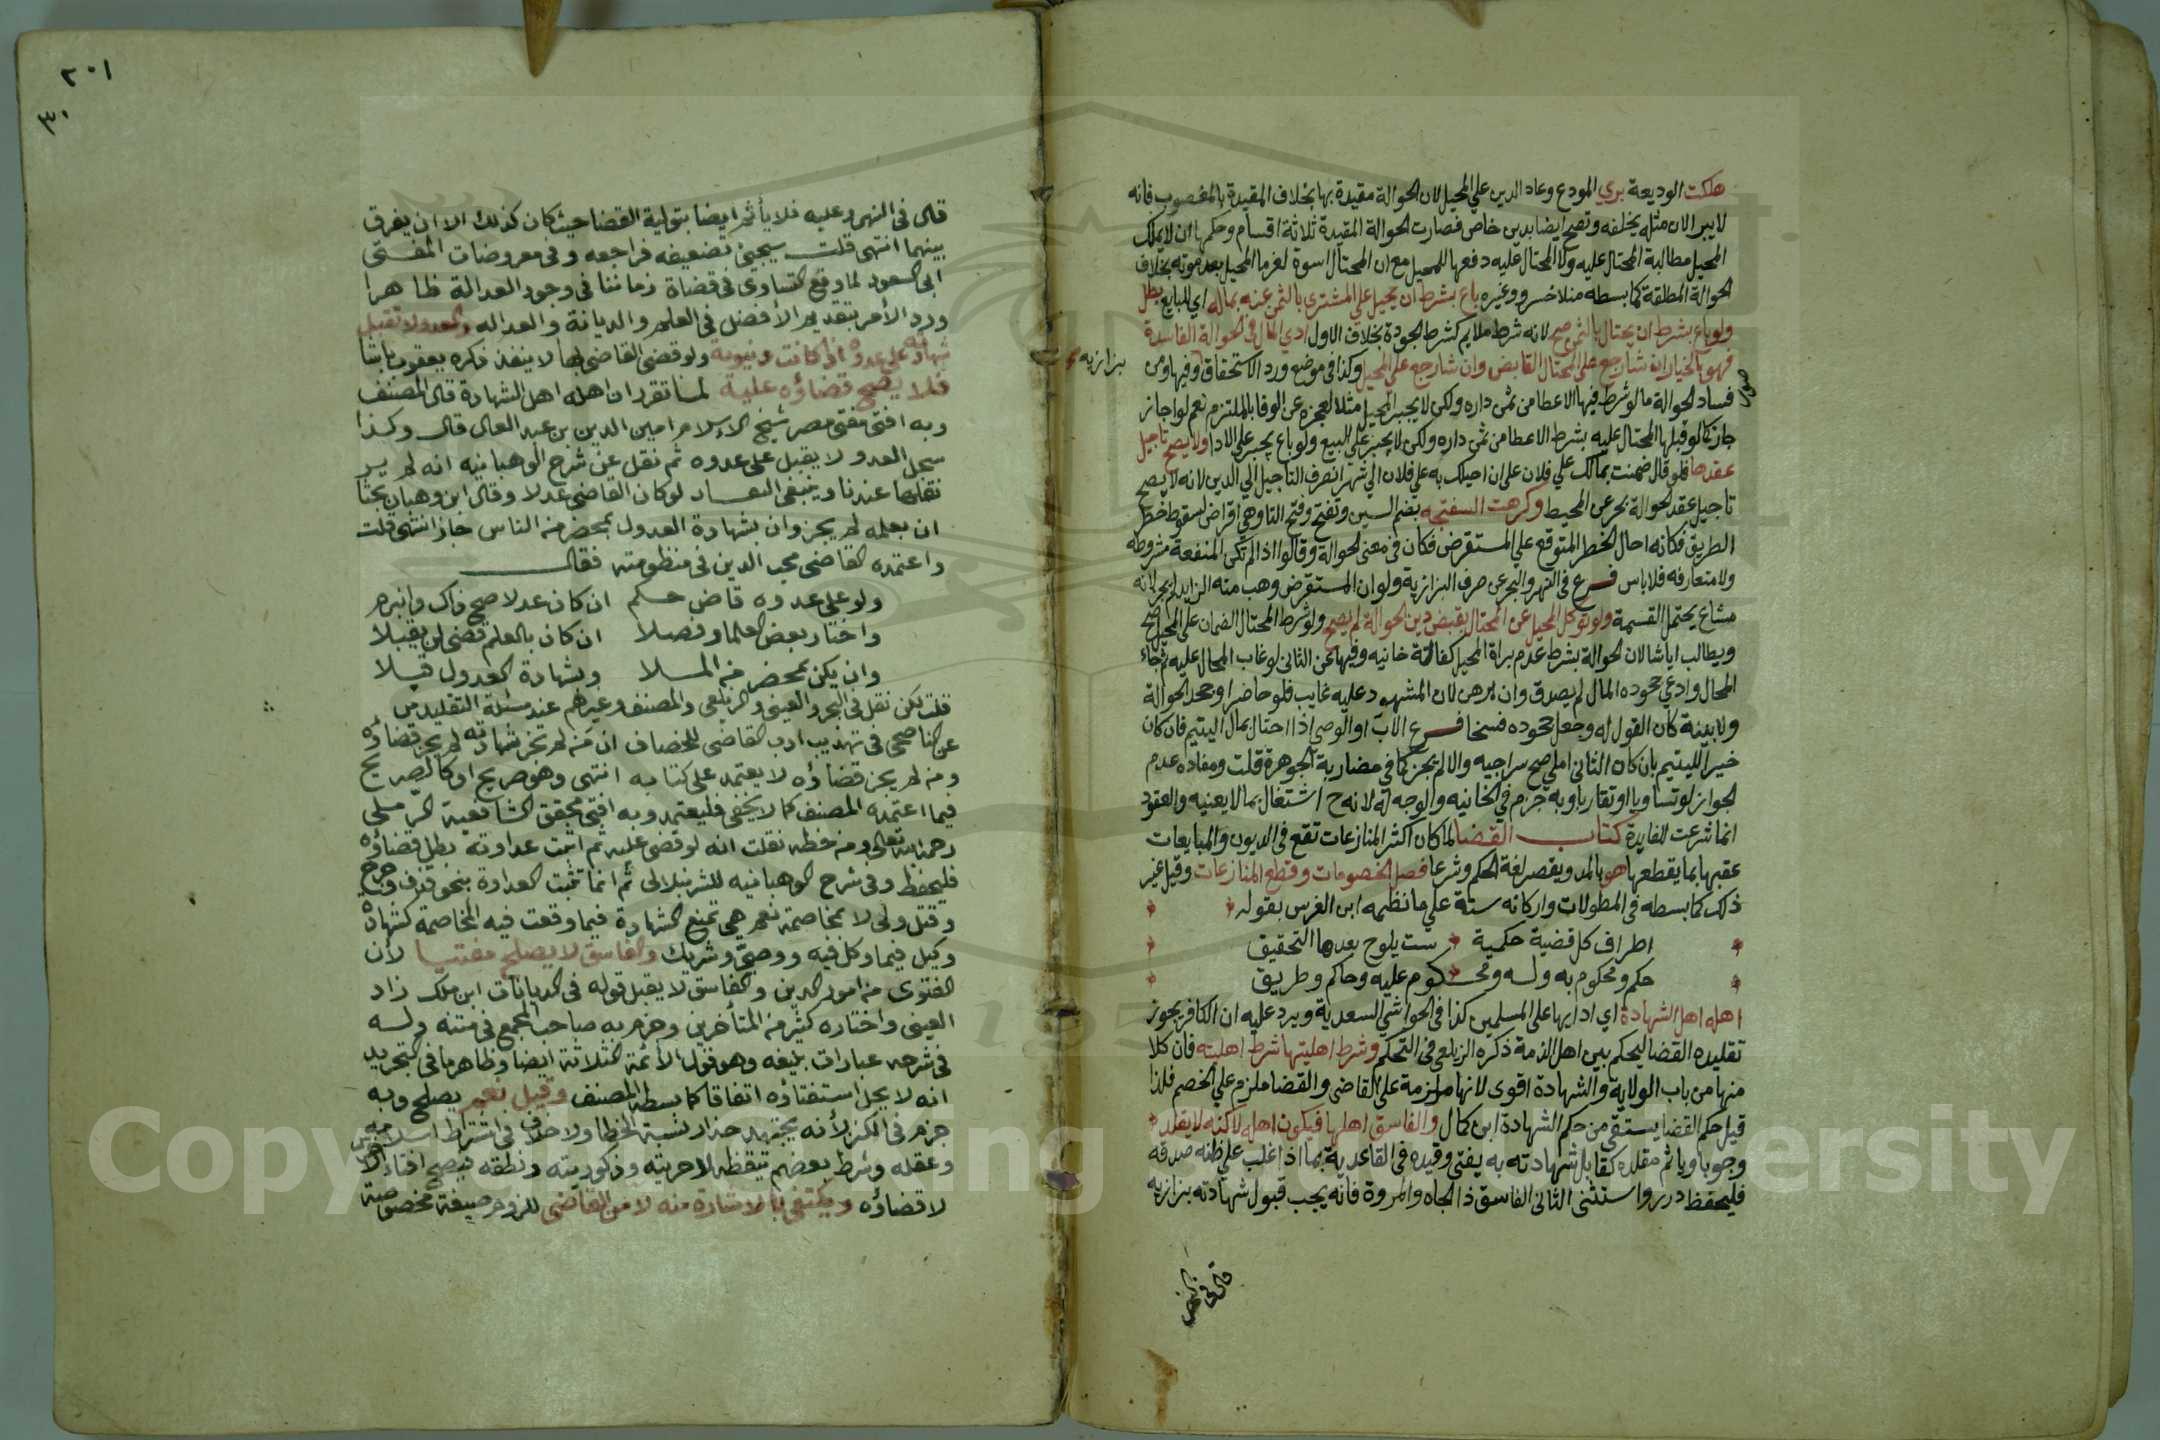 هلكت الوديعة بري المودع وعاد الدين علي المحيل لان الحوالة مقيدة بها بخلاف المقيدة بالمغصوب فانه
لايبرا لان مثله يخلفه وتصح ايضا بدين خاص فصارت الحوالة المقيدة ثلاثة اقسام وحكمها ان لا يملك
المحيل مطالبة المحتال عليه ولا المحتال عليه دفعها للمحيل مع ان المحتال اسوة لغرما المحيل بعد موته بخلاف
الحوالة المطلقة كما بسطه منلا خسرو وغيره باع بشرط ان يحيل علي المشتري بالثمن غريمه بماله اي للبايع بطل
ولو باع بشرط ان يحتال بالثمن صح لانه شرط ملايم كشرط الجودة بخلاف الاول ادي المال في الحوالة الفاسدة
فهو بالخيار ان شا رجع علي المحتال القابض وان شا رجع علي المحيل وكذا في موضع ورد الاستحقاق وفيها ومن
بزازيه
فساد الحوالة ما لو شرط فيها الاعطا من ثمن داره ولكن لا يجبر المحيل مثلا لعجزه عن الوفا بالملتزم نعم لو اجاز
جاز كما لو قبلها المحتال عليه بشرط الاعطا من ثمن داره ولكن لا يجبر علي البيع ولو باع يجبر علي الادا ولا يصح تاجيل
عقدها فلو قال ضمنت بمالك علي فلان علي ان احيلك به علي فلان الي شهر انصرف التاجيل الي الدين لانه لا يصح
تاجيل عقد الحوالة بحر عن المحيط وكرهت السفتجه بضم السين وتفتح وفتح التا وهي اقراض لسقوط خطر
الطريق فكانه احال الخطر المتوقع علي المستقرض فكان في معني الحوالة وقالوا اذا لم تكن المنفعة مشروطه
ولا متعارفه فلا باس فرع في النهر والبحر عن صرف البزازية ولو ان المستقرض وهب منه الزايد لم يجز لانه
مشاع يحتمل القسمة ولو توكل المحيل عن المحتال بقبض دين الحوالة لم يصح ولو شرط المحتال الضمان علي المحيل صح
ويطالب ايا شا لان الحوالة بشرط عدم براة المحيل كفالة خانيه وفيها عن الثاني لو غاب المحال عليه ثم جاء
المحال وادعي جحوده المال لم يصدق وان برهن لان المشهود عليه غايب فلو حاضرا وجحد الحوالة
ولا بينة كان القول له وجعل جحوده فسخا فرع الاب او الوصي اذا احتال بمال اليتيم فان كان
خيرا لليتيم بان كان الثاني املي صح سراجيه والا لم يجز كما في مضاربة الجوهرة قلت ومفاده عدم
الجواز لو تساويا او تقاربا وبه جزم في الخانيه والوجه له لانه ح اشتغال بما لا يعنيه والعقود
انما شرعت للفايدة كتاب القضا لما كان اكثر المنازعات تقع في الديون والمبايعات
عقبها بما يقطعها هو بالمد ويقصر لغة الحكم وشرعا فصل الخصومات وقطع المنازعات وقيل غير
ذلك كما بسطه في المطولات واركانه ستة علي ما نظمه ابن الغرس بقوله
اطراف كل قضية حكمية ست يلوح بعدها التحقيق
حكم ومحكوم به وله ومحكوم عليه وحاكم وطريق
اهله اهل الشهادة اي ادايها علي المسلمين كذا في الحواشي السعدية ويرد عليه ان الكافر يجوز
تقليده القضا ليحكم بين اهل الذمة ذكره الزيلعي في التحكم وشرط اهليتها شرط اهليته فان كلا
منها من باب الولاية والشهادة اقوي لانها ملزمة علي القاضي والقضا ملزم علي الخصم فلذا
قيل حكم القضا يستقي من حكم الشهادة ابن كمال والفاسق اهلها فيكون اهله لكنه لا يقلد
وجوبا وياثم مقلده كقابل شهادته به يفتي وقيده في القاعدية بما اذا غلب علي ظنه صدقه
فليحفظ درر واستثني الثاني الفاسق ذا الجاه والمروة فانه يجب قبول شهادته بزازيه
قال في النهر
٢٠١
٣٠
قال في النهر وعليه فلا يأثم ايضا بتولية القضا حيث كان كذلك الا ان يفرق
بينهما انتهي قلت سيجئ تضعيفه فراجعه وفي معروضات المفتي
ابي السعود لما وقع التساوي في قضاة زماننا في وجود العدالة ظاهرا
ورد الأمر بتقديم الأفضل في العلم والديانة والعداله والعدو لا تقبل
شهادته علي عدوه اذا كانت دنيوية ولو قضي القاضي بها لا ينفذ ذكره يعقوب باشا
فلا يصح قضاؤه عليه لما تقرر ان اهله اهل الشهادة قال المصنف
وبه افتي مفتي مصر شيخ الاسلام امين الدين بن عبد العال قال وكذا
سجل العدو لا يقبل علي عدوه ثم نقل عن شرح الوهبانيه انه لم ير
نقلها عندنا وينبغي النفاد لو كان القاضي عدلا وقال ابن وهبان بحثا
ان بعلمه لم يجز وان بشهادة العدول بمحضر من الناس جاز انتهي قلت
واعتمده القاضي محب الدين في منظومته فقال
ولو علي عدوه قاض حكم ان كان عدلا صح ذاك وانبرم
واختار بعض العلما وفصلا ان كان بالعلم قضي لن يقبلا
وان يكن بمحضر من الملا وبشهادة العدول قبلا
قلت لكن نقل في البحر والعيني والزيلعي والمصنف وغيرهم عند مسئلة التقليد من
عن الناصحي في تهذيب ادب القاضي للخصاف ان من لم تجز شهادته لم يجز قضاؤه
ومن لم يجز قضاؤه لا يعتمد علي كتابه انتهي وهو صريح او كالصريح
فيما اعتمده المصنف كما لا يخفي فليعتمد وبه افتي محقق الشافعية الرملي
رحمه الله تعالي ومن خطه نقلت انه لو قضي عليه ثم اثبت عداوته بطل قضاؤه
فليحفظ وفي شرح الوهبانيه للشرنبلالي ثم انما تثبت العداوة بنحو قذف وجرح
وقتل ولي لا بمخاصمة نعم هي تمنع الشهادة فيما وقعت فيه المخاصمة كشهادة
وكيل فيما وكل فيه ووصي وشريك والفاسق لا يصلح مفتيا لأن
الفتوي من امور الدين والفاسق لا يقبل قوله في الديانات ابن ملك زاد
العيني واختاره كثير من المتأخرين وجزم به صاحب المجمع في متنه وله
في شرحه عبارات بليغه وهو قول الأئمة الثلاثة ايضا وظاهر ما في التحرير
انه لا يحل استفتاؤه اتفاقا كما بسطه المصنف وقيل نعم يصلح وبه
جزم في الكنز لأنه يجتهد حذار نسبة الخطا ولا خلاف في اشتراط اسلامه
وعقله وشرط بعضهم تيقظه لا حريته وذكوريته ونطقه فيصح افتاء الاخرس
لا قضاؤه ويكتفي بالاشارة منه لا من القاضي للزوم صيغة مخصوصة